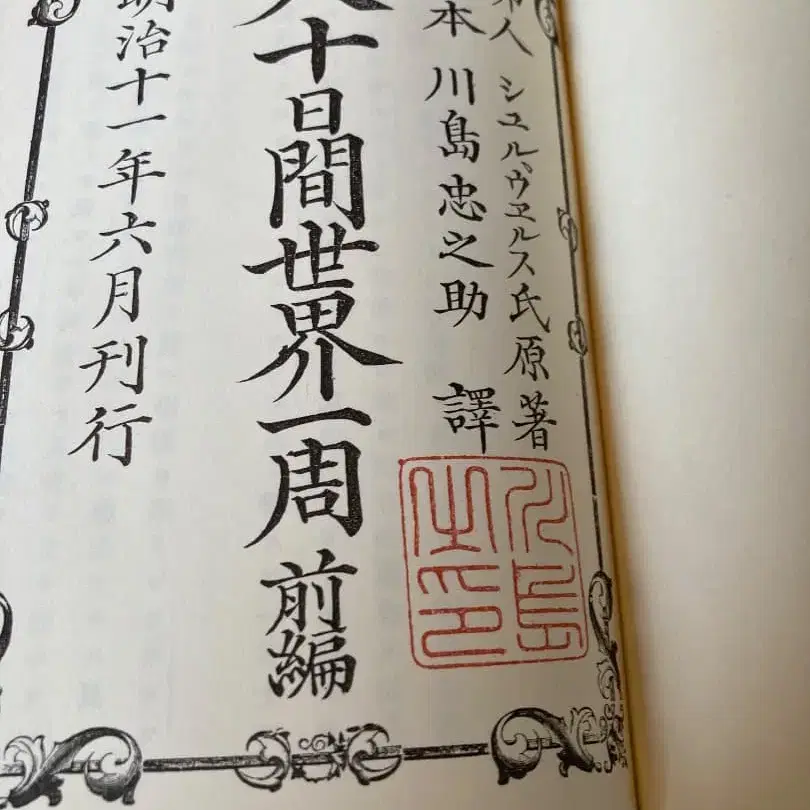 人 シユル、ウヱルス氏原著
本 川島忠之助 譯
八十日間世界一周 前編
明治十一年六月刊行
川島
之印